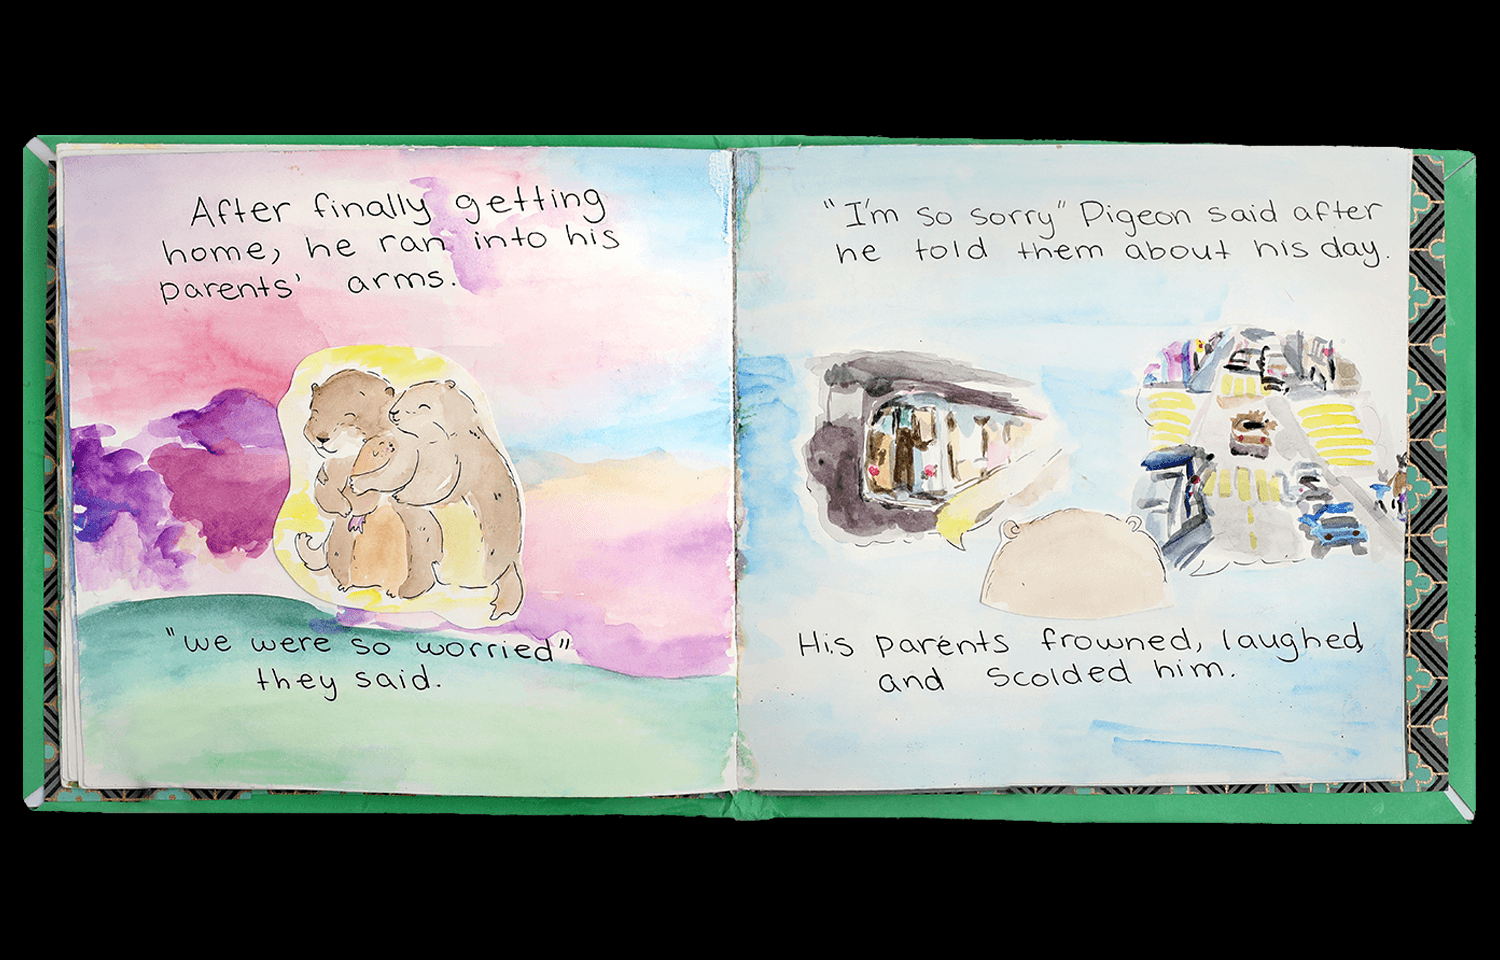 After finally getting
home, he ran into his
parents' arms.
"we were so worried"
they said.
"I'm so sorry" Pigeon said after
he told them about his day.
His parents frowned, laughed,
and scolded him.